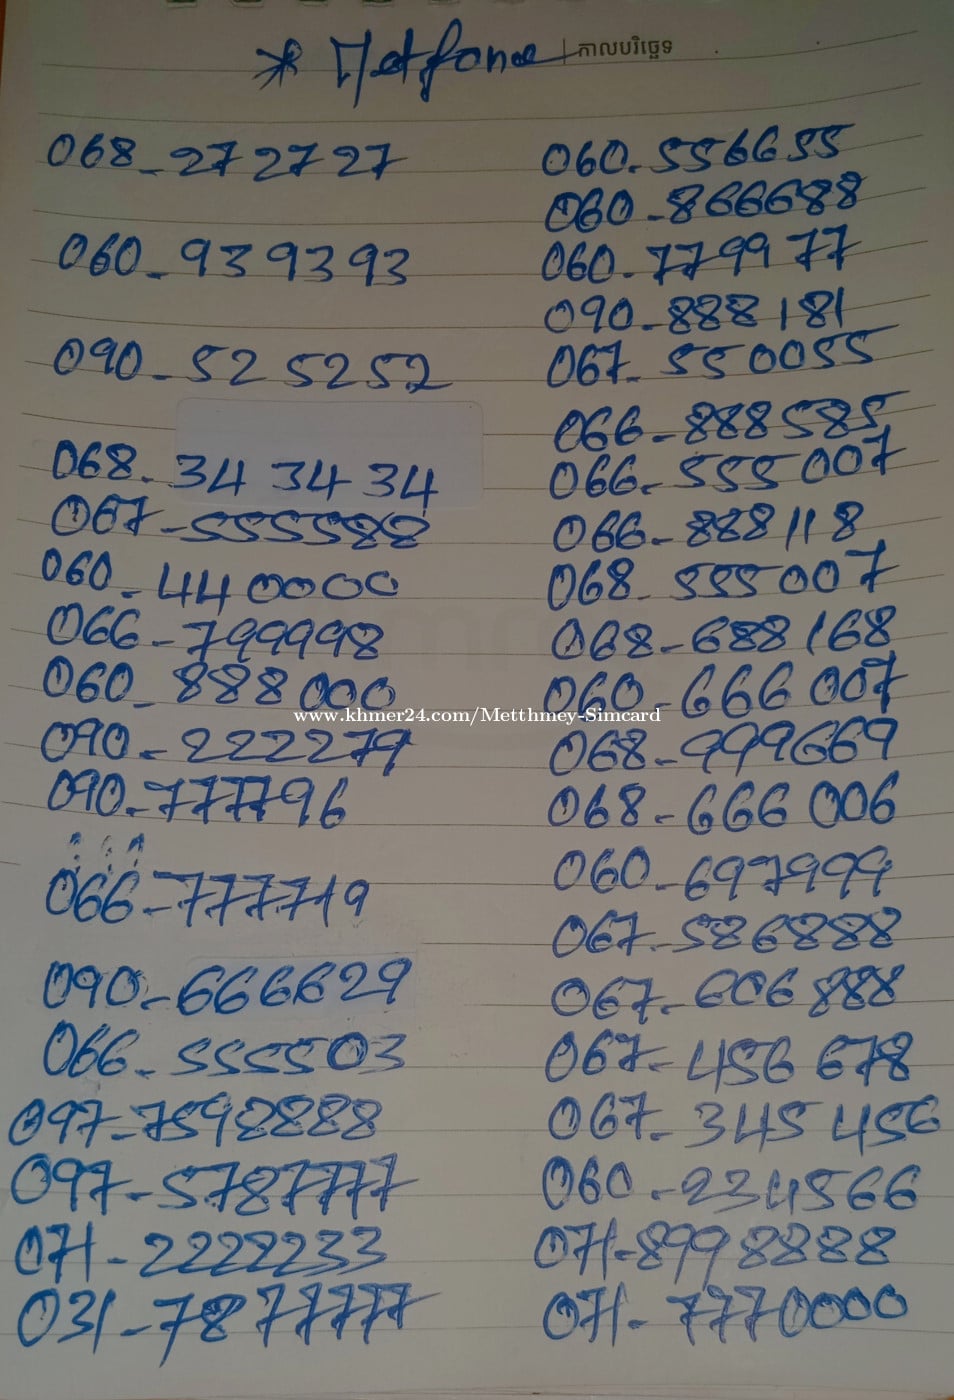 * Metfone កាលបរិច្ឆេទ
068-272727
060-939393
090-525252
068-34 34 34
067-555588
060-440000
066-799998
060-888000
090-222279
090-777796
066-777719
090-666629
066-555503
097-7592888
097-5787777
071-2222233
031-7877777
060-556655
060-866688
060-779977
090-888181
067-550055
066-888585
066-555007
066-888118
068-555007
068-688168
060-666007
www.khmer24.com/Metthmey-Simcard
068-999669
068-666006
060-697999
067-586888
067-606888
067-456 678
067-345 456
060-234566
071-8998888
071-7770000